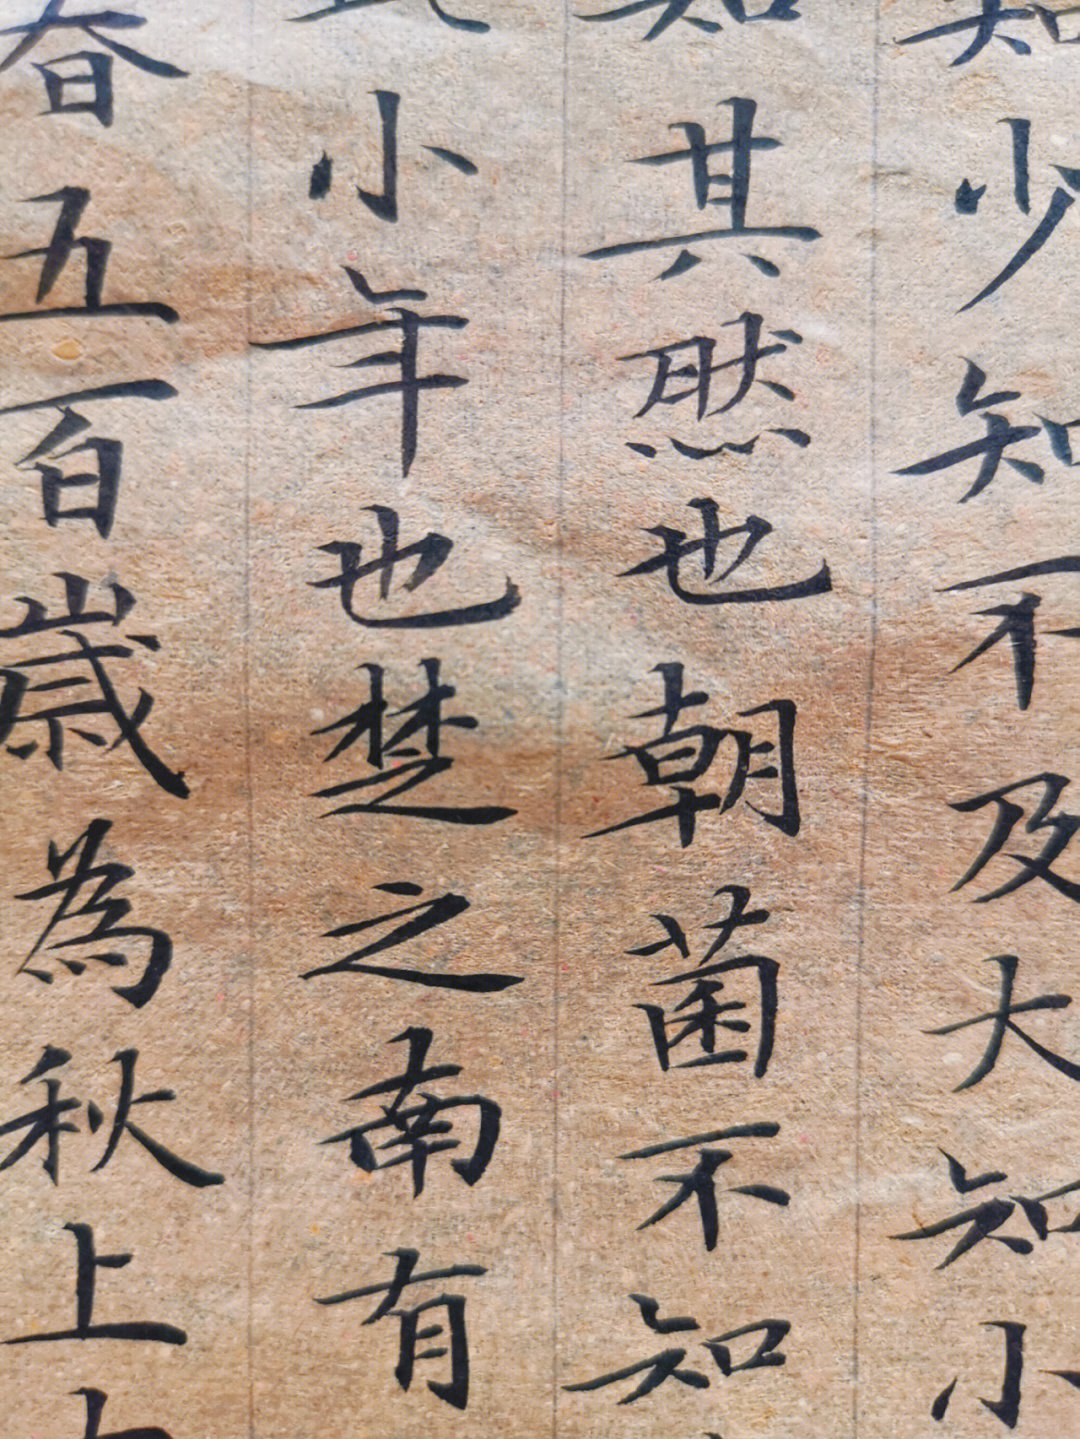 知少知不及大知小
知其然也朝菌不知
小年也楚之南有
春五百歲為秋上